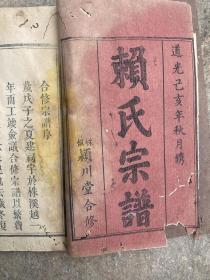 道光己亥年秋月鐫
賴氏宗譜
穎川堂合修
合修宗譜序
歲戊子之夏建祠宇於株溪越
年而工竣僉議合修宗譜以繁費